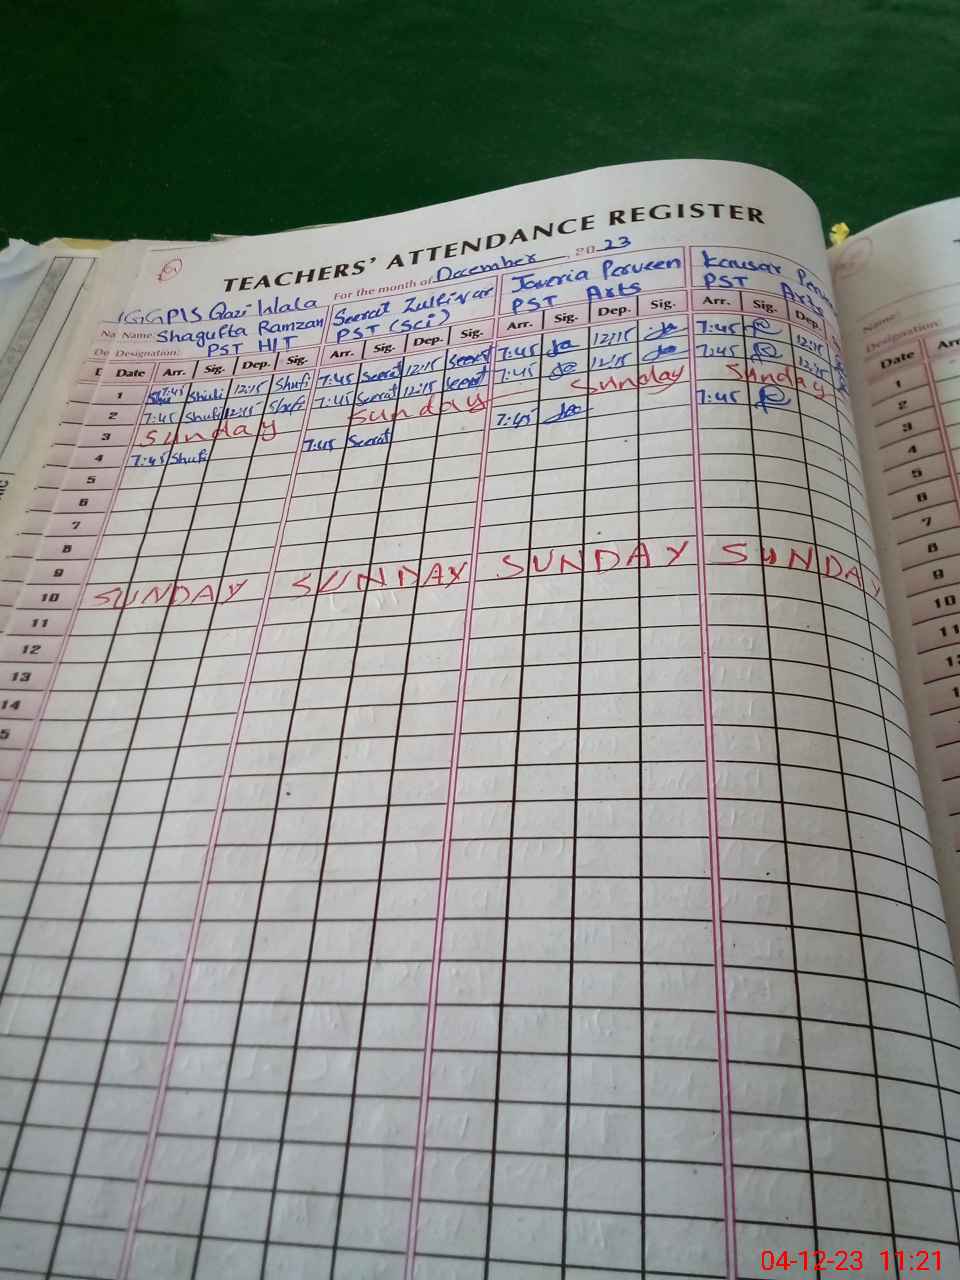 TEACHERS' ATTENDANCE REGISTER
For the month of December 2023
GGPS Qazi Wala
Name: Shagufta Ramzan
Designation: PST HIT
Seerat Zulfiqar
PST (Sci)
Javeria Perveen
PST Arts
Kausar
PST Arts
Date Arr. Sig. Dep. Sig. Arr. Sig. Dep. Sig. Arr. Sig. Dep. Sig. Arr. Sig. Dep.
1 7:45 Shufi 12:15 Shufi 7:45 Seerat 12:15 Seerat 7:45 12:15 7:45 12:15
2 7:45 Shufi 12:15 Shufi 7:45 Seerat 12:15 Seerat 7:45 12:15 7:45 12:15
3 Sunday Sunday Sunday Sunday
4 7:45 Shufi 7:45 Seerat 7:45 7:45
5
6
7
8
9
10 SUNDAY SUNDAY SUNDAY SUNDAY
11
12
13
14
5
Name:
Designation
Date Arr
1
2
3
4
5
6
7
8
9
10
11
04-12-23 11:21